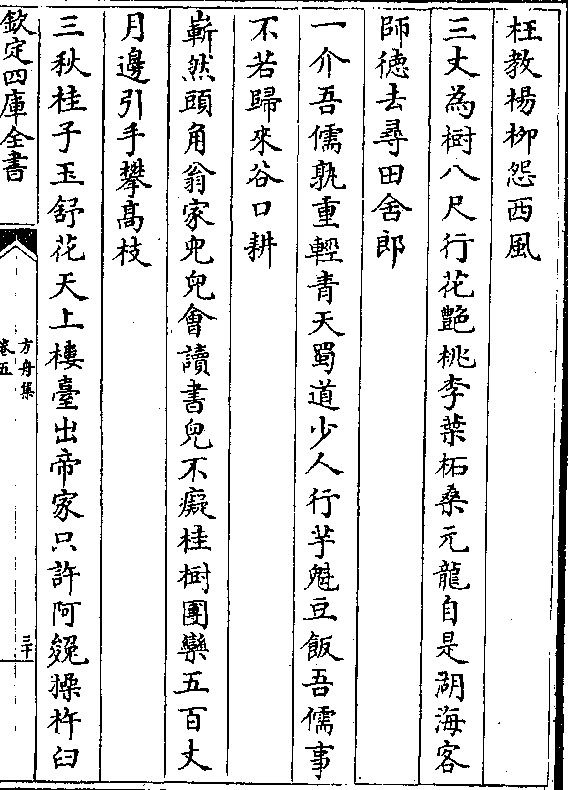 枉教楊柳怨西風
三丈為樹八尺行花艶桃李葉柘桑元龍自是湖海客
師徳去尋田舍郎
一介吾儒孰重輕青天蜀道少人行芋魁豆飯吾儒事
不若歸來谷口耕
嶄然頭角翁家兒兒會讀書兒不癡桂樹團欒五百丈
月邊引手攀高枝
三秋桂子玉舒花天上樓臺出帝家只許阿㕙操杵臼
欽定四庫全書
方舟集
卷五
三十